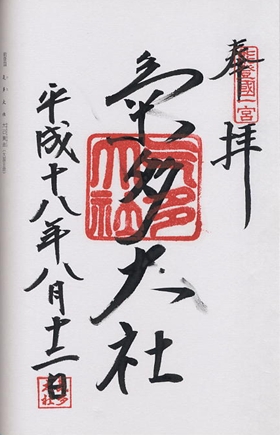 能登國一宮
奉拝
氣多大社
氣多大社
平成十八年八月十二日